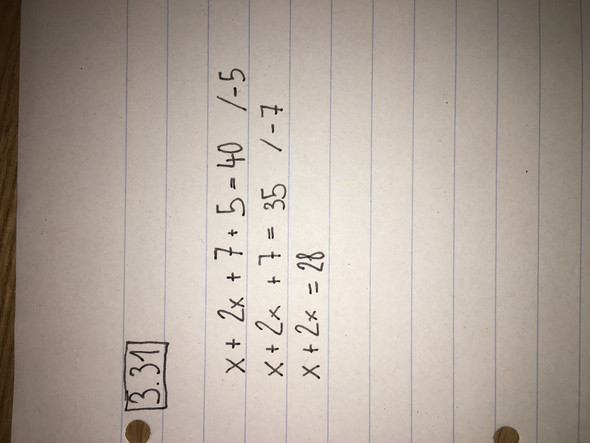 3.31
x + 2x + 7 + 5 = 40 /-5
x + 2x + 7 = 35 /-7
x + 2x = 28